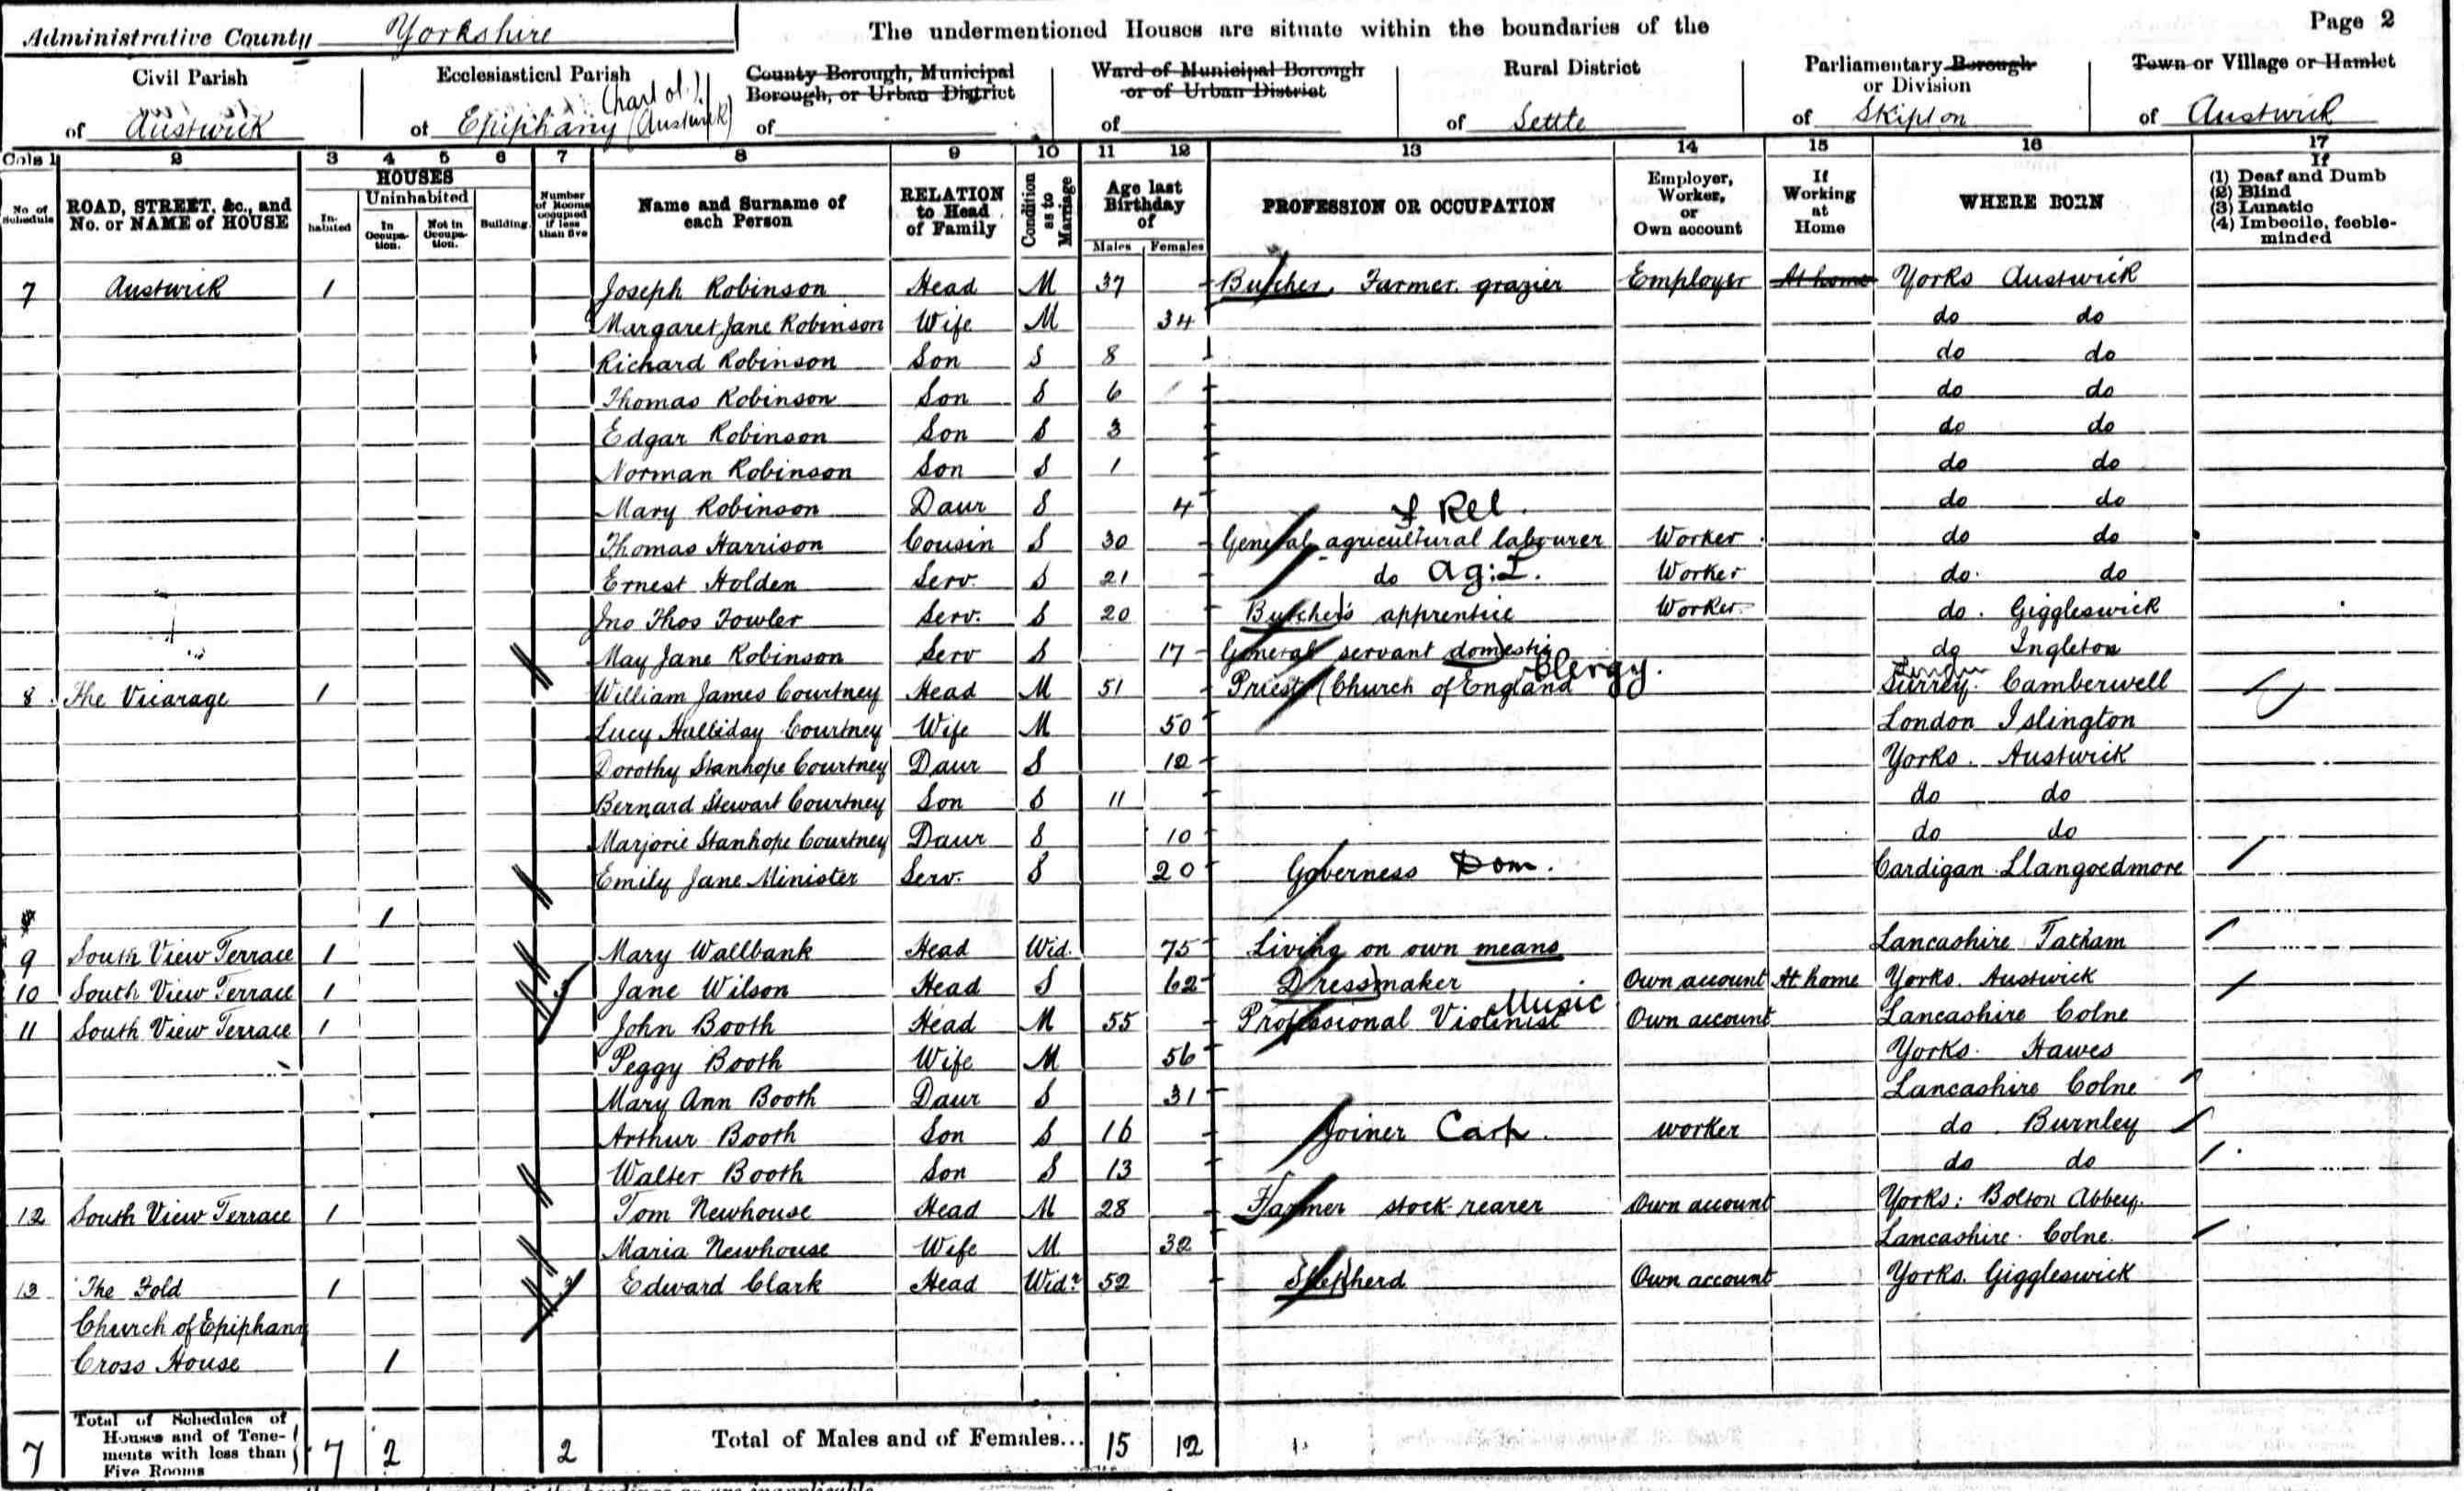 Administrative County Yorkshire
The undermentioned Houses are situate within the boundaries of the
Page 2
Civil Parish of Austwick
Ecclesiastical Parish of Epiphany (Austwick)
County Borough, Municipal Borough, or Urban District of
Ward of Municipal Borough or of Urban District of
Rural District of Settle
Parliamentary Borough or Division of Skipton
Town or Village or Hamlet of Austwick
Cols 1 2 3 4 5 6 7 8 9 10 11 12 13 14 15 16 17
No. of Schedule
ROAD, STREET, &c., and No. or NAME of HOUSE
HOUSES
Inhabited
Uninhabited
In Occupation.
Not in Occupation.
Building.
Number of Rooms occupied if less than five
Name and Surname of each Person
RELATION to Head of Family
Condition as to Marriage
Age last Birthday of
Males Females
PROFESSION OR OCCUPATION
Employer, Worker, or Own account
If Working at Home
WHERE BORN
If
(1) Deaf and Dumb
(2) Blind
(3) Lunatic
(4) Imbecile, feeble-minded
7 Austwick 1 Joseph Robinson Head M 37 Butcher, Farmer grazier Employer At home Yorks Austwick
Margaret Jane Robinson Wife M 34 do do
Richard Robinson Son S 8 do do
Thomas Robinson Son S 6 do do
Edgar Robinson Son S 3 do do
Norman Robinson Son S 1 do do
Mary Robinson Daur S 4 do do
Rel.
Thomas Harrison Cousin S 30 General agricultural labourer Worker do do
Ernest Holden Serv. S 21 do Ag: Worker do do
Jno Thos Fowler Serv. S 20 Butcher's apprentice Worker do Giggleswick
May Jane Robinson Serv S 17 General servant domestic do Ingleton
Clergy.
8 The Vicarage 1 William James Courtney Head M 51 Priest (Church of England Surrey Camberwell
Lucy Halliday Courtney Wife M 50 London Islington
Dorothy Stanhope Courtney Daur S 12 Yorks. Austwick
Bernard Stewart Courtney Son S 11 do do
Marjorie Stanhope Courtney Daur S 10 do do
Emily Jane Minister Serv. S 20 Governess Dom. Cardigan Llangoedmore
1
9 South View Terrace 1 Mary Wallbank Head Wid. 75 Living on own means Lancashire Tatham
10 South View Terrace 1 Jane Wilson Head S 62 Dressmaker Own account At home Yorks. Austwick
11 South View Terrace 1 John Booth Head M 55 Professional Violinist Music Own account Lancashire Colne
Peggy Booth Wife M 56 Yorks. Hawes
Mary Ann Booth Daur S 31 Lancashire Colne
Arthur Booth Son S 16 Joiner Carp. worker do Burnley
Walter Booth Son S 13 do do
12 South View Terrace 1 Tom Newhouse Head M 28 Farmer stock-rearer Own account Yorks: Bolton Abbey.
Maria Newhouse Wife M 32 Lancashire Colne.
13 The Fold 1 3 Edward Clark Head Widr 52 Shepherd Own account Yorks. Giggleswick
Church of Epiphany
Cross House 1
7 Total of Schedules of Houses and of Tenements with less than Five Rooms 7 2 2 Total of Males and of Females... 15 12